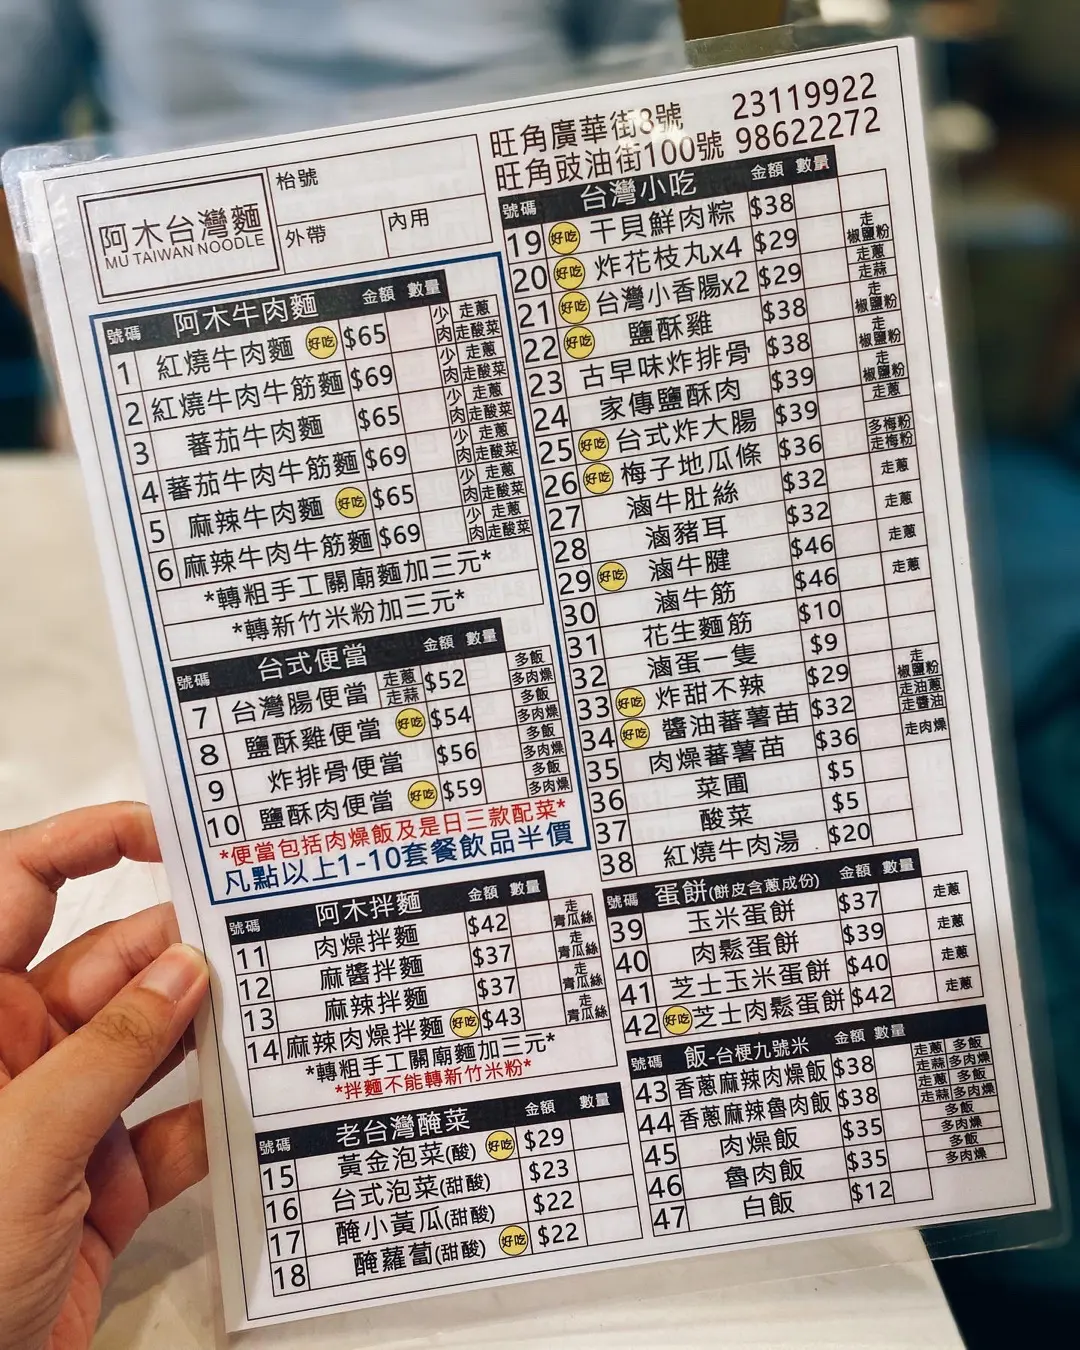 旺角廣華街8號 23119922
旺角豉油街100號 98622272
阿木台灣麵
MU TAIWAN NOODLE
枱號
外帶 內用
號碼 阿木牛肉麵 金額 數量
1 紅燒牛肉麵 好吃 $65 少肉 走蔥 走酸菜
2 紅燒牛肉牛筋麵 $69 少肉 走蔥 走酸菜
3 蕃茄牛肉麵 $65 少肉 走蔥 走酸菜
4 蕃茄牛肉牛筋麵 $69 少肉 走蔥 走酸菜
5 麻辣牛肉麵 好吃 $65 少肉 走蔥 走酸菜
6 麻辣牛肉牛筋麵 $69 少肉 走蔥 走酸菜
*轉粗手工關廟麵加三元*
*轉新竹米粉加三元*
號碼 台式便當 金額 數量
7 台灣腸便當 走蔥 走蒜 $52 多飯 多肉燥
8 鹽酥雞便當 好吃 $54 多飯 多肉燥
9 炸排骨便當 $56 多飯 多肉燥
10 鹽酥肉便當 好吃 $59 多飯 多肉燥
*便當包括肉燥飯及是日三款配菜*
凡點以上1-10套餐飲品半價
號碼 阿木拌麵 金額 數量
11 肉燥拌麵 $42 走青瓜絲
12 麻醬拌麵 $37 走青瓜絲
13 麻辣拌麵 $37 走青瓜絲
14 麻辣肉燥拌麵 好吃 $43 走青瓜絲
*轉粗手工關廟麵加三元*
*拌麵不能轉新竹米粉*
號碼 老台灣醃菜 金額 數量
15 黃金泡菜(酸) 好吃 $29
16 台式泡菜(甜酸) $23
17 醃小黃瓜(甜酸) $22
18 醃蘿蔔(甜酸) 好吃 $22
號碼 台灣小吃 金額 數量
19 好吃 干貝鮮肉粽 $38
20 好吃 炸花枝丸x4 $29 走椒鹽粉
21 好吃 台灣小香腸x2 $29 走蔥 走蒜
22 好吃 鹽酥雞 $38 走椒鹽粉
23 古早味炸排骨 $38 走椒鹽粉
24 家傳鹽酥肉 $39 走椒鹽粉
25 好吃 台式炸大腸 $39 走蔥
26 好吃 梅子地瓜條 $36 多梅粉 走梅粉
27 滷牛肚絲 $32 走蔥
28 滷豬耳 $32 走蔥
29 好吃 滷牛腱 $46 走蔥
30 滷牛筋 $46 走蔥
31 花生麵筋 $10
32 滷蛋一隻 $9
33 好吃 炸甜不辣 $29 走椒鹽粉
34 好吃 醬油蕃薯苗 $32 走油蔥 走醬油
35 肉燥蕃薯苗 $36 走肉燥
36 菜圃 $5
37 酸菜 $5
38 紅燒牛肉湯 $20
號碼 蛋餅(餅皮含蔥成份) 金額 數量
39 玉米蛋餅 $37 走蔥
40 肉鬆蛋餅 $39 走蔥
41 芝士玉米蛋餅 $40 走蔥
42 好吃 芝士肉鬆蛋餅 $42 走蔥
號碼 飯-台梗九號米 金額 數量
43 香蔥麻辣肉燥飯 $38 走蔥 多飯 走蒜 多肉燥
44 香蔥麻辣魯肉飯 $38 走蔥 多飯 走蒜 多肉燥
45 肉燥飯 $35 多飯 多肉燥
46 魯肉飯 $35 多飯 多肉燥
47 白飯 $12